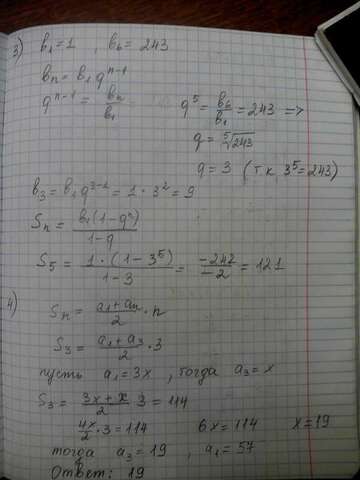 3) b₁=1 , b₆ = 243
bₙ = b₁ qⁿ⁻¹
qⁿ⁻¹ = bₙ/b₁ q⁵ = b₆/b₁ = 243 =>
q = ⁵√243
q = 3 (т.к 3⁵=243)
b₃ = b₁q³⁻¹ = 1 · 3² = 9
Sₙ = b₁(1-qⁿ)/1-q
S₅ = 1·(1-3⁵)/1-3 = -242/-2 = 121
4) Sₙ = a₁+aₙ/2 · n
S₃ = a₁+a₃/2 · 3
пусть a₁=3x , тогда a₃ = x
S₃ = 3x+x/2 · 3 = 114
4x/2 · 3 = 114 6x = 114 x = 19
тогда a₃ = 19 , a₁ = 57
Ответ: 19